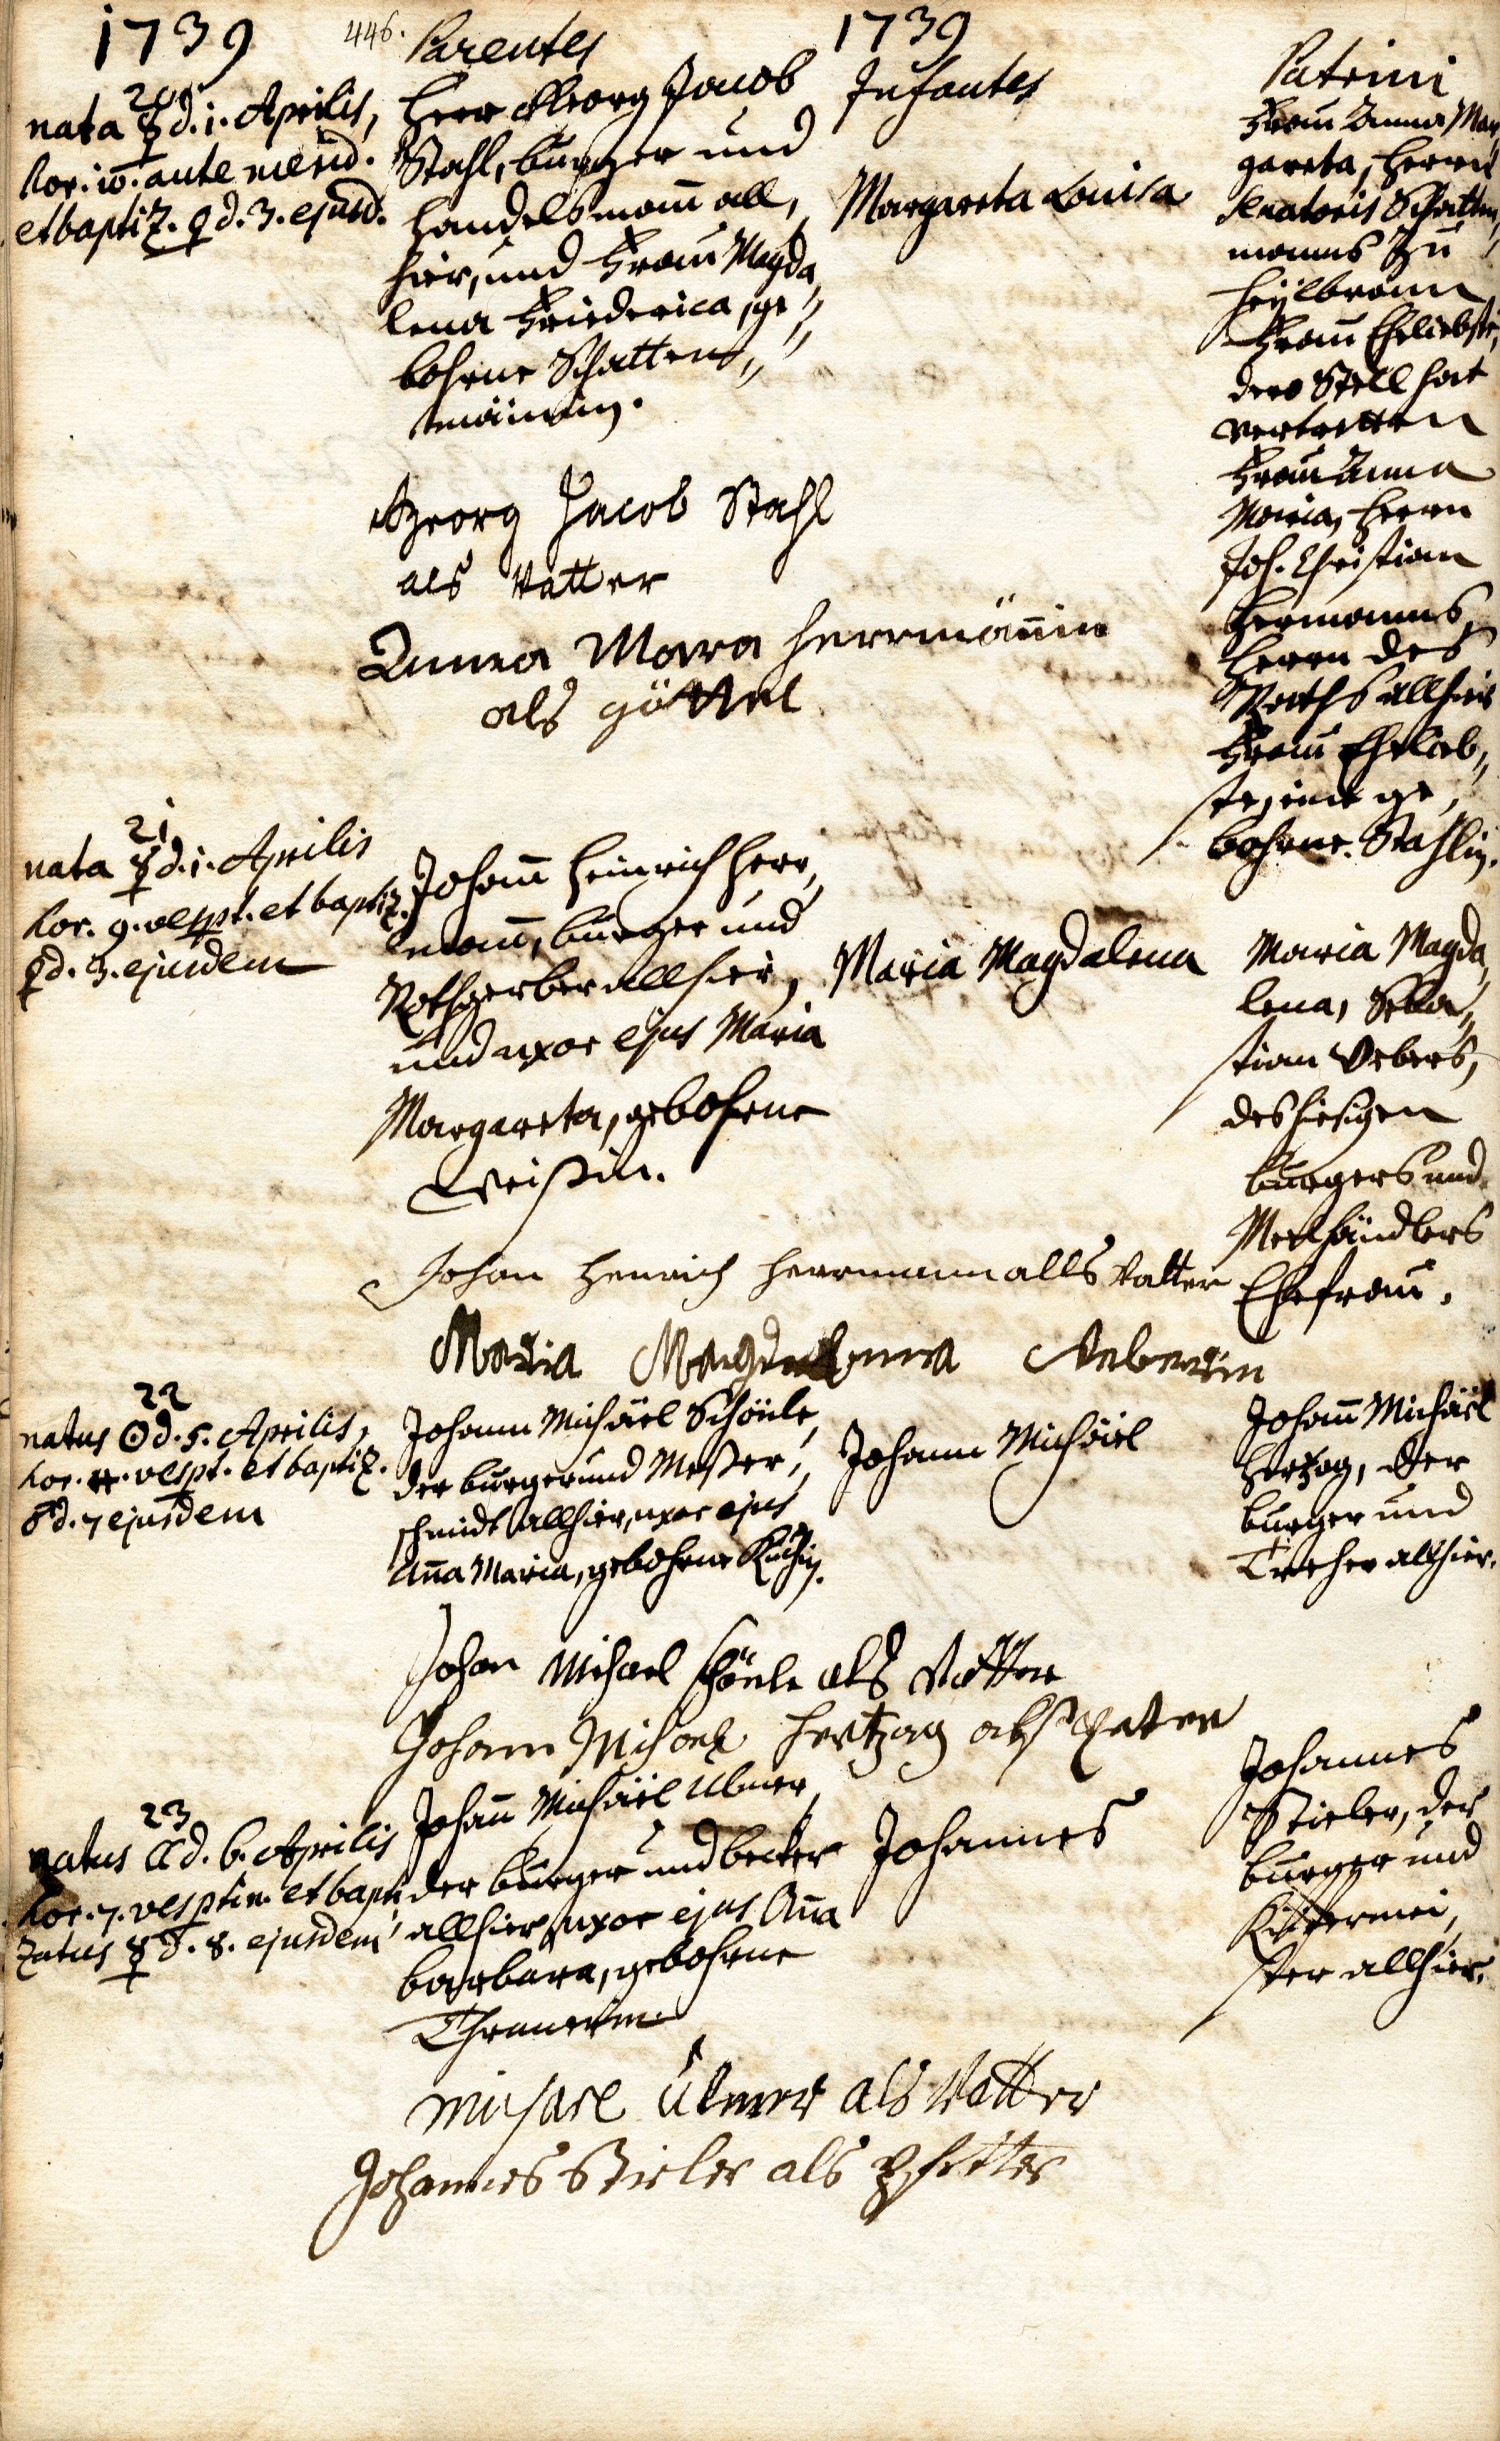 1739
446.
Parentes
1739
Infantes
Patrini
20
nata ☿ d. 1. Aprilis,
hor. 10. ante merid.
et baptiz. ♀ d. 3. ejusd.
Herr Georg Jacob
Stahl, burger und
handelsmañ all,
hier, und Frau Magda,
lena Friederica, ge„
bohrne Schatten„
männin.
Margareta Louisa
Frau Anna Mar,
gareta, Herrn
Senatoris Schatten,
manns Zu
Heylbronn
Frau Eheliebste,
dero Stell hat
vertretten
Frau Anna
Maria, Herrn
Joh. Christian
Hermanns,
Herrn des
Raths allhier
Frau Ehelieb„
ste, eine ge,
bohrne Stahlin.
Georg Jacob Stahl
als Vatter
Anna Mara Herrmännin
als göttel
21
nata ☿ d. 1. Aprilis
hor. 9. vespt. et baptiz.
♀ d. 3. ejusdem
Johañ Heinrich Herr,
mañ, burger und
Rothgerber allhier,
und uxor ejus Maria
Margareta, gebohrne
Weißin.
Maria Magdalena
Maria Magda,
lena, Seba„
stian Webers,
des hiesigen
burgers und
Meelhändlers
Ehefrau.
Johan Henrich Herrmann alls Vatter
Maria Magdalenna Weberin
22
natus ☉ d. 5. Aprilis,
hor. 11. vespt. et baptiz.
♂ d. 7 ejusdem
Johann Michäel Schönle,
der burger und Meßer„
schmidt allhier, uxor ejus
Aña Maria, gebohrne Küchin.
Johann Michäel
Johañ Michäel
Hertzog, der
burger und
Dreher allhier.
Johan Michael Schönle als Vatter
Johann Michael Hertzog als Pfater
23
natus ☾ d. 6. Aprilis
hor. 7. vesptin. et bapti,
zatus ☿ d. 8. ejusdem
Johañ Michäel Ulmer,
der burger und becker
allhier, uxor ejus Aña
barbara, gebohrne
Johannes
Johannes
Stieler, der
burger und
Küfermei,
ster allhier.
Michael Ulmer als Vatter
Johannes Stieler als Pfetter